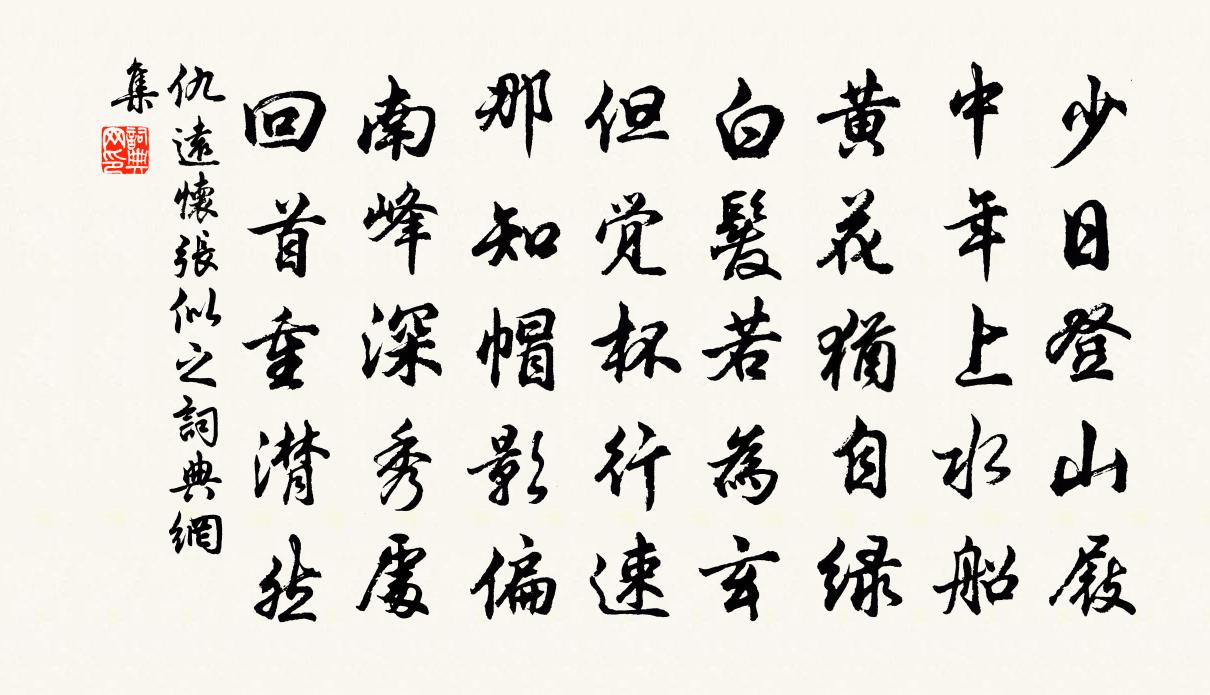 少日登山屐
中年上水船
黄花猶自绿
白髮若為玄
但觉杯行速
那知帽影偏
南峰深秀處
回首重潸然
仇遠懷張似之詞典網
集
詞典
网印